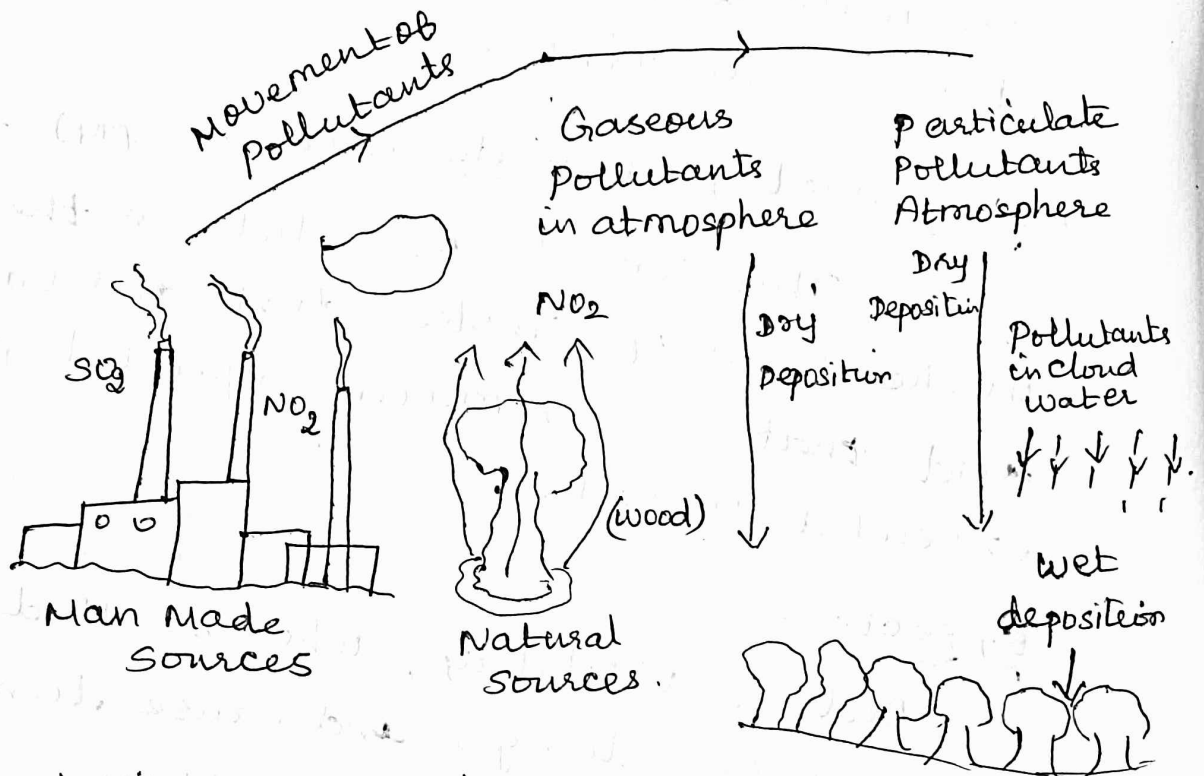 Movement of
Pollutants
Gaseous
Pollutants
in atmosphere
Particulate
Pollutants
Atmosphere
SO2
NO2
NO2
(wood)
Dry
Deposition
Dry
Deposition
Pollutants
in cloud
water
wet
deposition
Man Made
Sources
Natural
Sources.